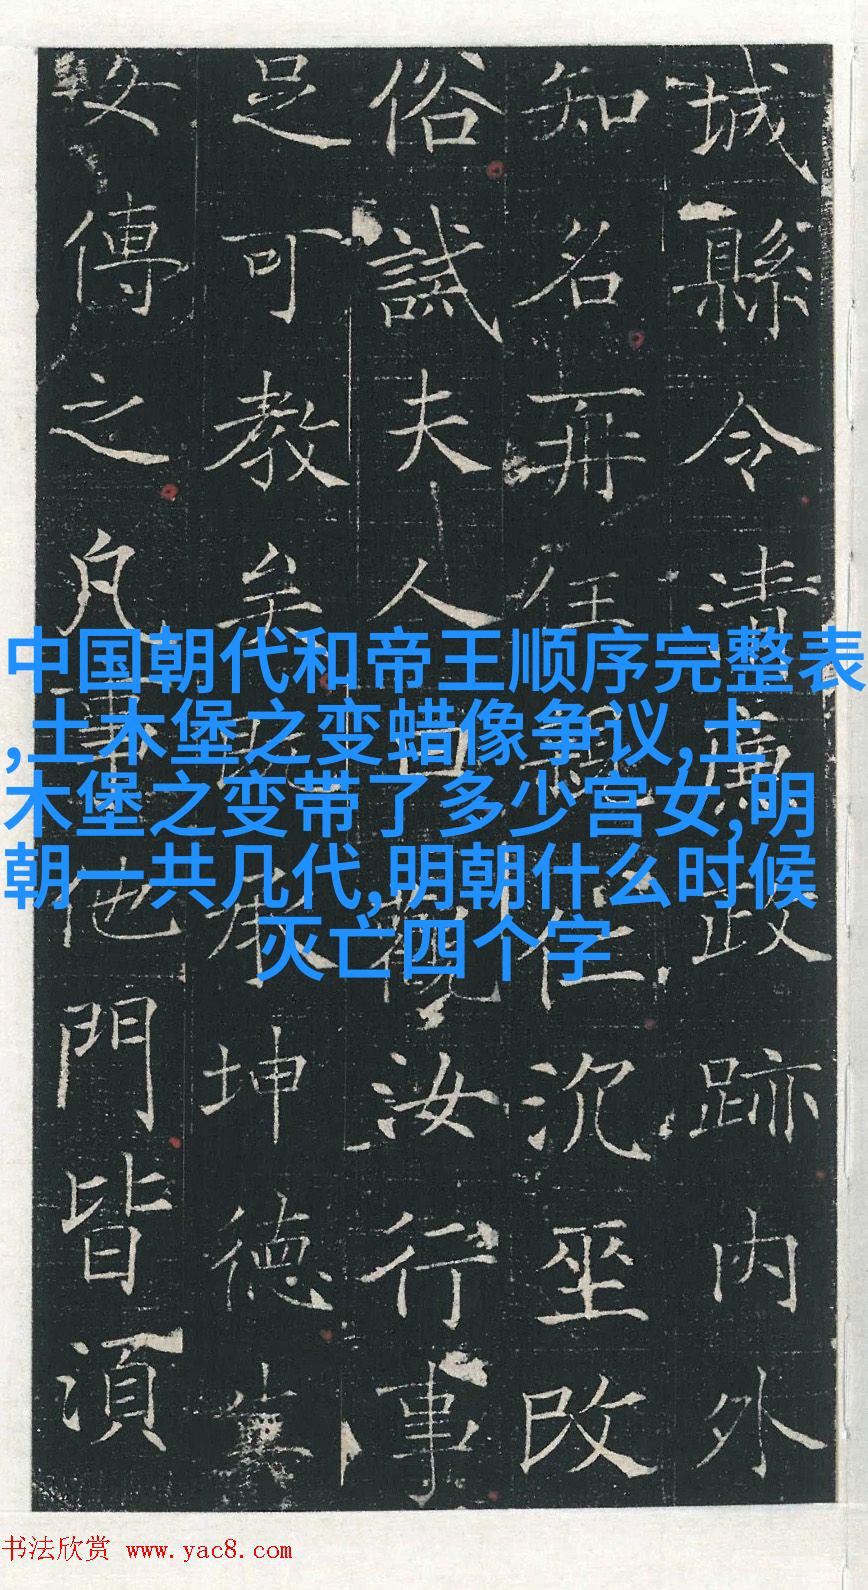 城縣令清廉政跡内外
知名再任沉坐改
俗誡夫人曰觀汝行事
足可教矣既承坤德冀
傳之凡事他門皆須
中国朝代和帝王顺序完整表
,土木堡之变蜡像争议,土
木堡之变带了多少宫女,明
朝一共几代,明朝什么时候
灭亡四个字
书法欣赏 www.yac8.com